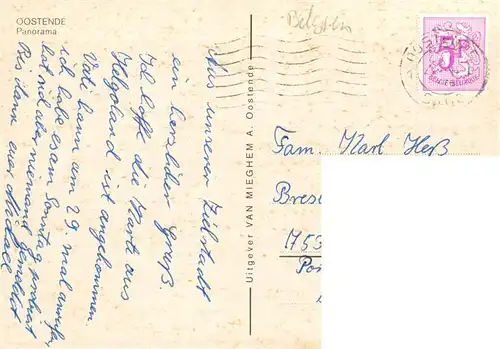 OOSTENDE
Panorama
Belgien
5F
BELGIE-BELGIQUE
Aus unserer Zielstadt
ein herzlicher Gruß.
Ich hoffe die Karte aus
Helgoland ist angekommen.
Vati kann am 29 mal anrufen,
ich habe es am Sonntag probiert
hat sich aber niemand gemeldet
Bis dann euer Michael
Uitgever VAN MIEGHEM A. Oostende
Fam. Karl Heß
Bres
753